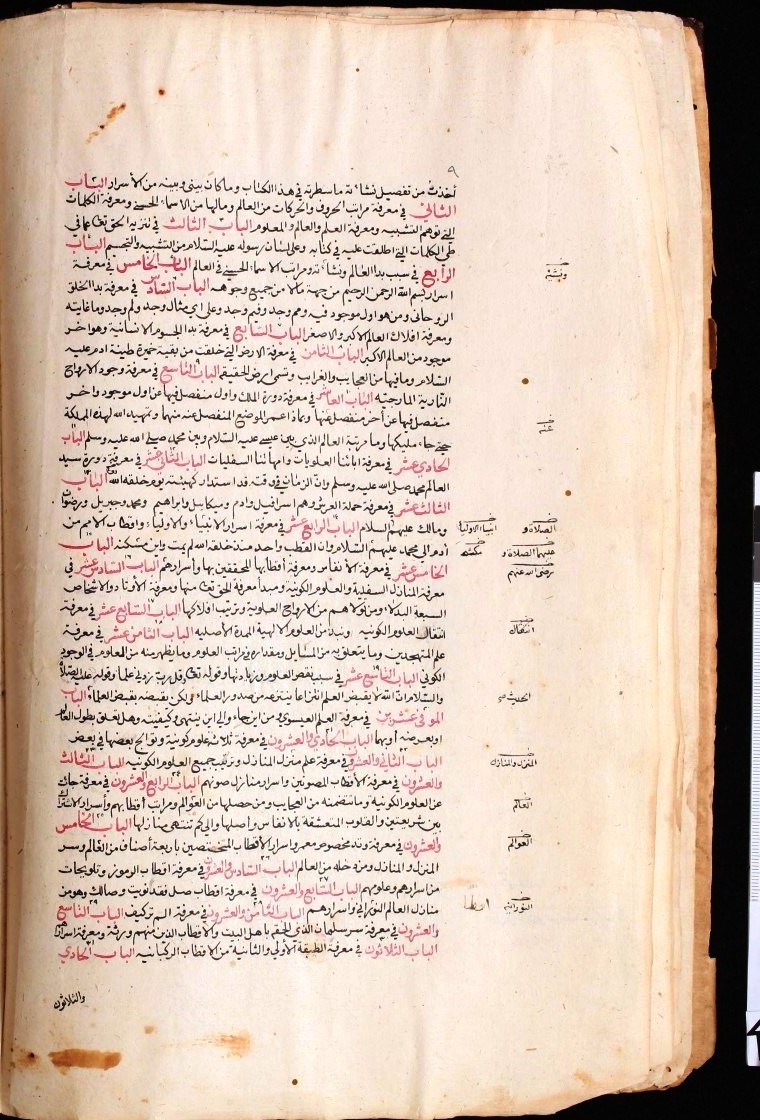 ٩
أخذت من تفصيل نشأته ما سطرته في هذا الكتاب وما كان بيني وبينه من الأسرار الباب
الثاني في معرفة مراتب الحروف والحركات من العالم وما لها من الاسماء الحسنى ومعرفة الكلمات
التي توهم التشبيه ومعرفة العلم والعالم والمعلوم الباب الثالث في تنزيه الحق تعالى عما في
طي الكلمات التي اطلقت عليه في كتابه وعلى لسان رسوله عليه السلام من التشبيه والتجسيم الباب
الرابع في سبب بدا العالم ونشأته ومراتب الاسماء الحسنى في العالم الباب الخامس في معرفة
اسرار بسم الله الرحمن الرحيم من جهة ما لا من جميع وجوهه الباب السادس في معرفة بدا الخلق
الروحاني ومن هو اول موجود فيه ومم وجد وفيم وجد وعلى اي مثال وجد ولم وجد وما غايته
ومعرفة افلاك العالم الاكبر والاصغر الباب السابع في معرفة بدا الجسوم الانسانية وهو اخر
موجود من العالم الاكبر الباب الثامن في معرفة الارض التي خلقت من بقية خميرة طينة ادم عليه
السلام وما فيها من العجايب والغرايب وتسمى ارض الحقيقة الباب التاسع في معرفة وجود الارواح
النارية المارجيه الباب العاشر في معرفة دورة الملك واول منفصل فيها عن اول موجود واخر
منفصل فيها عن آخر منفصل عنها وبماذا عمر الموضع المنفصل عنه منهما وتمهيد الله لهذه المملكة
حتى جاء مليكها وما مرتبة العالم الذي بين عيسى عليه السلام وبين محمد صلى الله عليه وسلم الباب
الحادي عشر في معرفة ابائنا العلويات وامهاتنا السفليات الباب الثاني عشر في معرفة دورة سيد
العالم محمد صلى الله عليه وسلم وان الزمان في وقته قد استدار كهيئته يوم خلقه الله الباب
الثالث عشر في معرفة حملة العرش وهم اسرافيل وادم وميكاييل وابراهيم ومحمد وجبريل ورضوان
ومالك عليهم السلام الباب الرابع عشر في معرفة اسرار الانبياء والاولياء واقطاب الامم من
ادم الى محمد عليهم السلام وان القطب واحد منذ خلقه الله لم يمت واين مسكنه الباب
الخامس عشر في معرفة الانفاس ومعرفة أقطابها المحققين بها وأسرارهم الباب السادس عشر في
معرفة المنازل السفلية والعلوم الكونية ومبدا معرفة الحق تعالى منها ومعرفة الاوتاد والاشخاص
السبعة البدلاء ومن تولاهم من الارواح العلوية وترتيب افلاكها الباب السابع عشر في معرفة
انتقال العلوم الكونيه ونبذ من العلوم الالهية الممدة الأصليه الباب الثامن عشر في معرفة
علم المتهجدين وما يتعلق به من المسايل ومقداره في مراتب العلوم وما يظهر منه من العلوم في الوجود
الكوني الباب التاسع عشر في سبب نقص العلوم وزيادتها وقوله تعالى وقل رب زدني علما وقوله عليه الصلاة
والسلام ان الله لا يقبض العلم انتزاعا ينتزعه من صدور العلماء ولكن يقبضه بقبض العلماء الباب
الموفي عشرين في معرفة العلم العيسوي ومن اين جاء والى اين ينتهي وكيفيته وهل تعلق بطول العالم
او بعرضه أو بهما الباب الحادي والعشرون في معرفة ثلاثة علوم كونية وتوالج بعضها في بعض
الباب الثاني والعشرون في معرفة علم منزل المنازل وترتيب جميع العلوم الكونيه الباب الثالث
والعشرون في معرفة الأقطاب المصونين واسرار منازل صونهم الباب الرابع والعشرون في معرفة جاءت
عن العلوم الكونيه وما تتضمنه من العجايب ومن حصلها من العوالم ومراتب أقطابهم وأسرار الاشتراك
بين شريعتين والقلوب المتعشقة بالانفاس واصلها والى كم تنتهي منازلها الباب الخامس
والعشرون في معرفة وتد مخصوص معمر واسرار الأقطاب المختصين باربعة أصناف من العالم وسر
المنزل والمنازل ومن دخله من العالم الباب السادس والعشرون في معرفة اقطاب الرموز وتلويحات
من اسرارهم وعلومهم الباب السابع والعشرون في معرفة اقطاب صل فقد نويت وصالك وهو من
منازل العالم النوراني واسرارهم الباب الثامن والعشرون في معرفة الم تركيف الباب التاسع
والعشرون في معرفة سر سلمان الذي الحقه باهل البيت والاقطاب الذين منهم ورثة ومعرفة اسرارهم
الباب الثلاثون في معرفة الطبقة الأولى والثانية من الاقطاب الركبانيه الباب الحادي
والثلاثون
الصلاة و
انبياء الاوليا
عليهما الصلاة و
مسكنه
رضي الله عنهم
انتقال
الحديث
المنزل والمنازل
العالم
العوالم